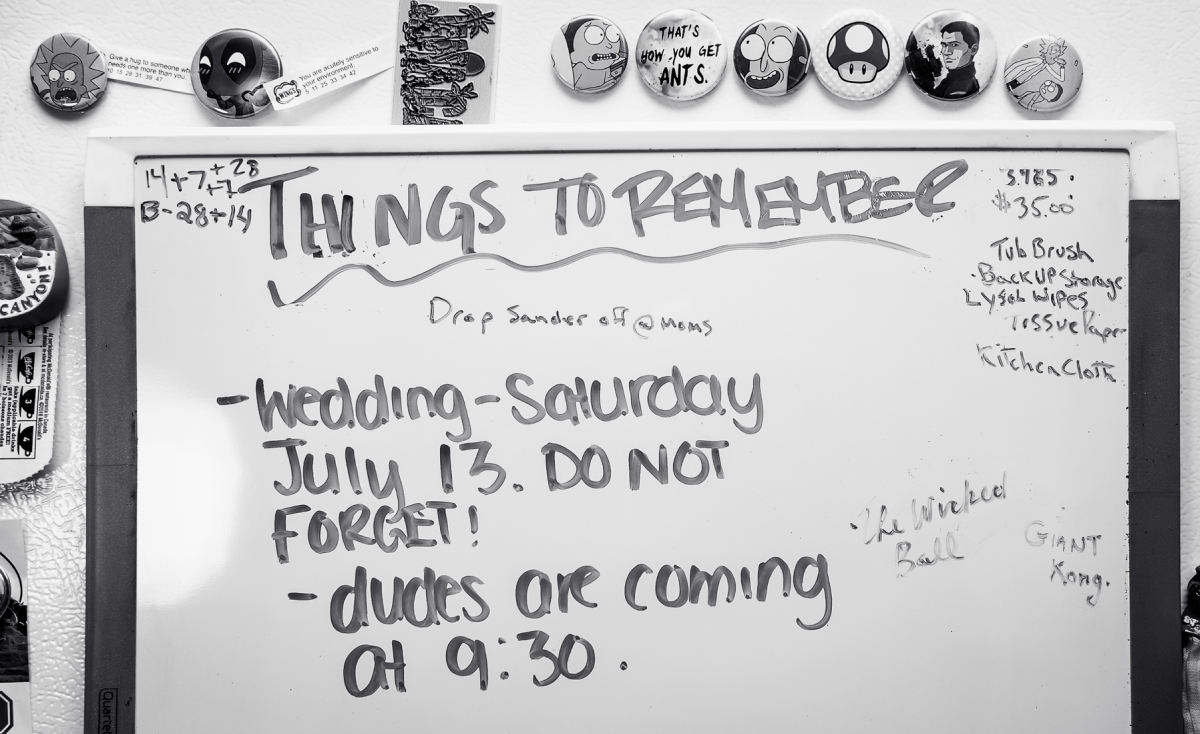 Give a hug to someone wh
needs one more than you
10 15 29 31 39 47
You are acutely sensitive to
your environment.
WING'S
5 11 25 33 34 42
THAT'S
HOW YOU GET
ANTS.
14+7+28
+7
B-28+14
THINGS TO REMEMBER
$35.00
Tub Brush
Backup Storage
Lysol Wipes
Tissue Paper
Kitchen Cloth
Drop Sander off @ Moms
-Wedding-Saturday
July 13. DO NOT
FORGET!
-dudes are coming
at 9:30.
The Wicked
Ball
GIANT
Kong.
CANYON
3
4
Quartet